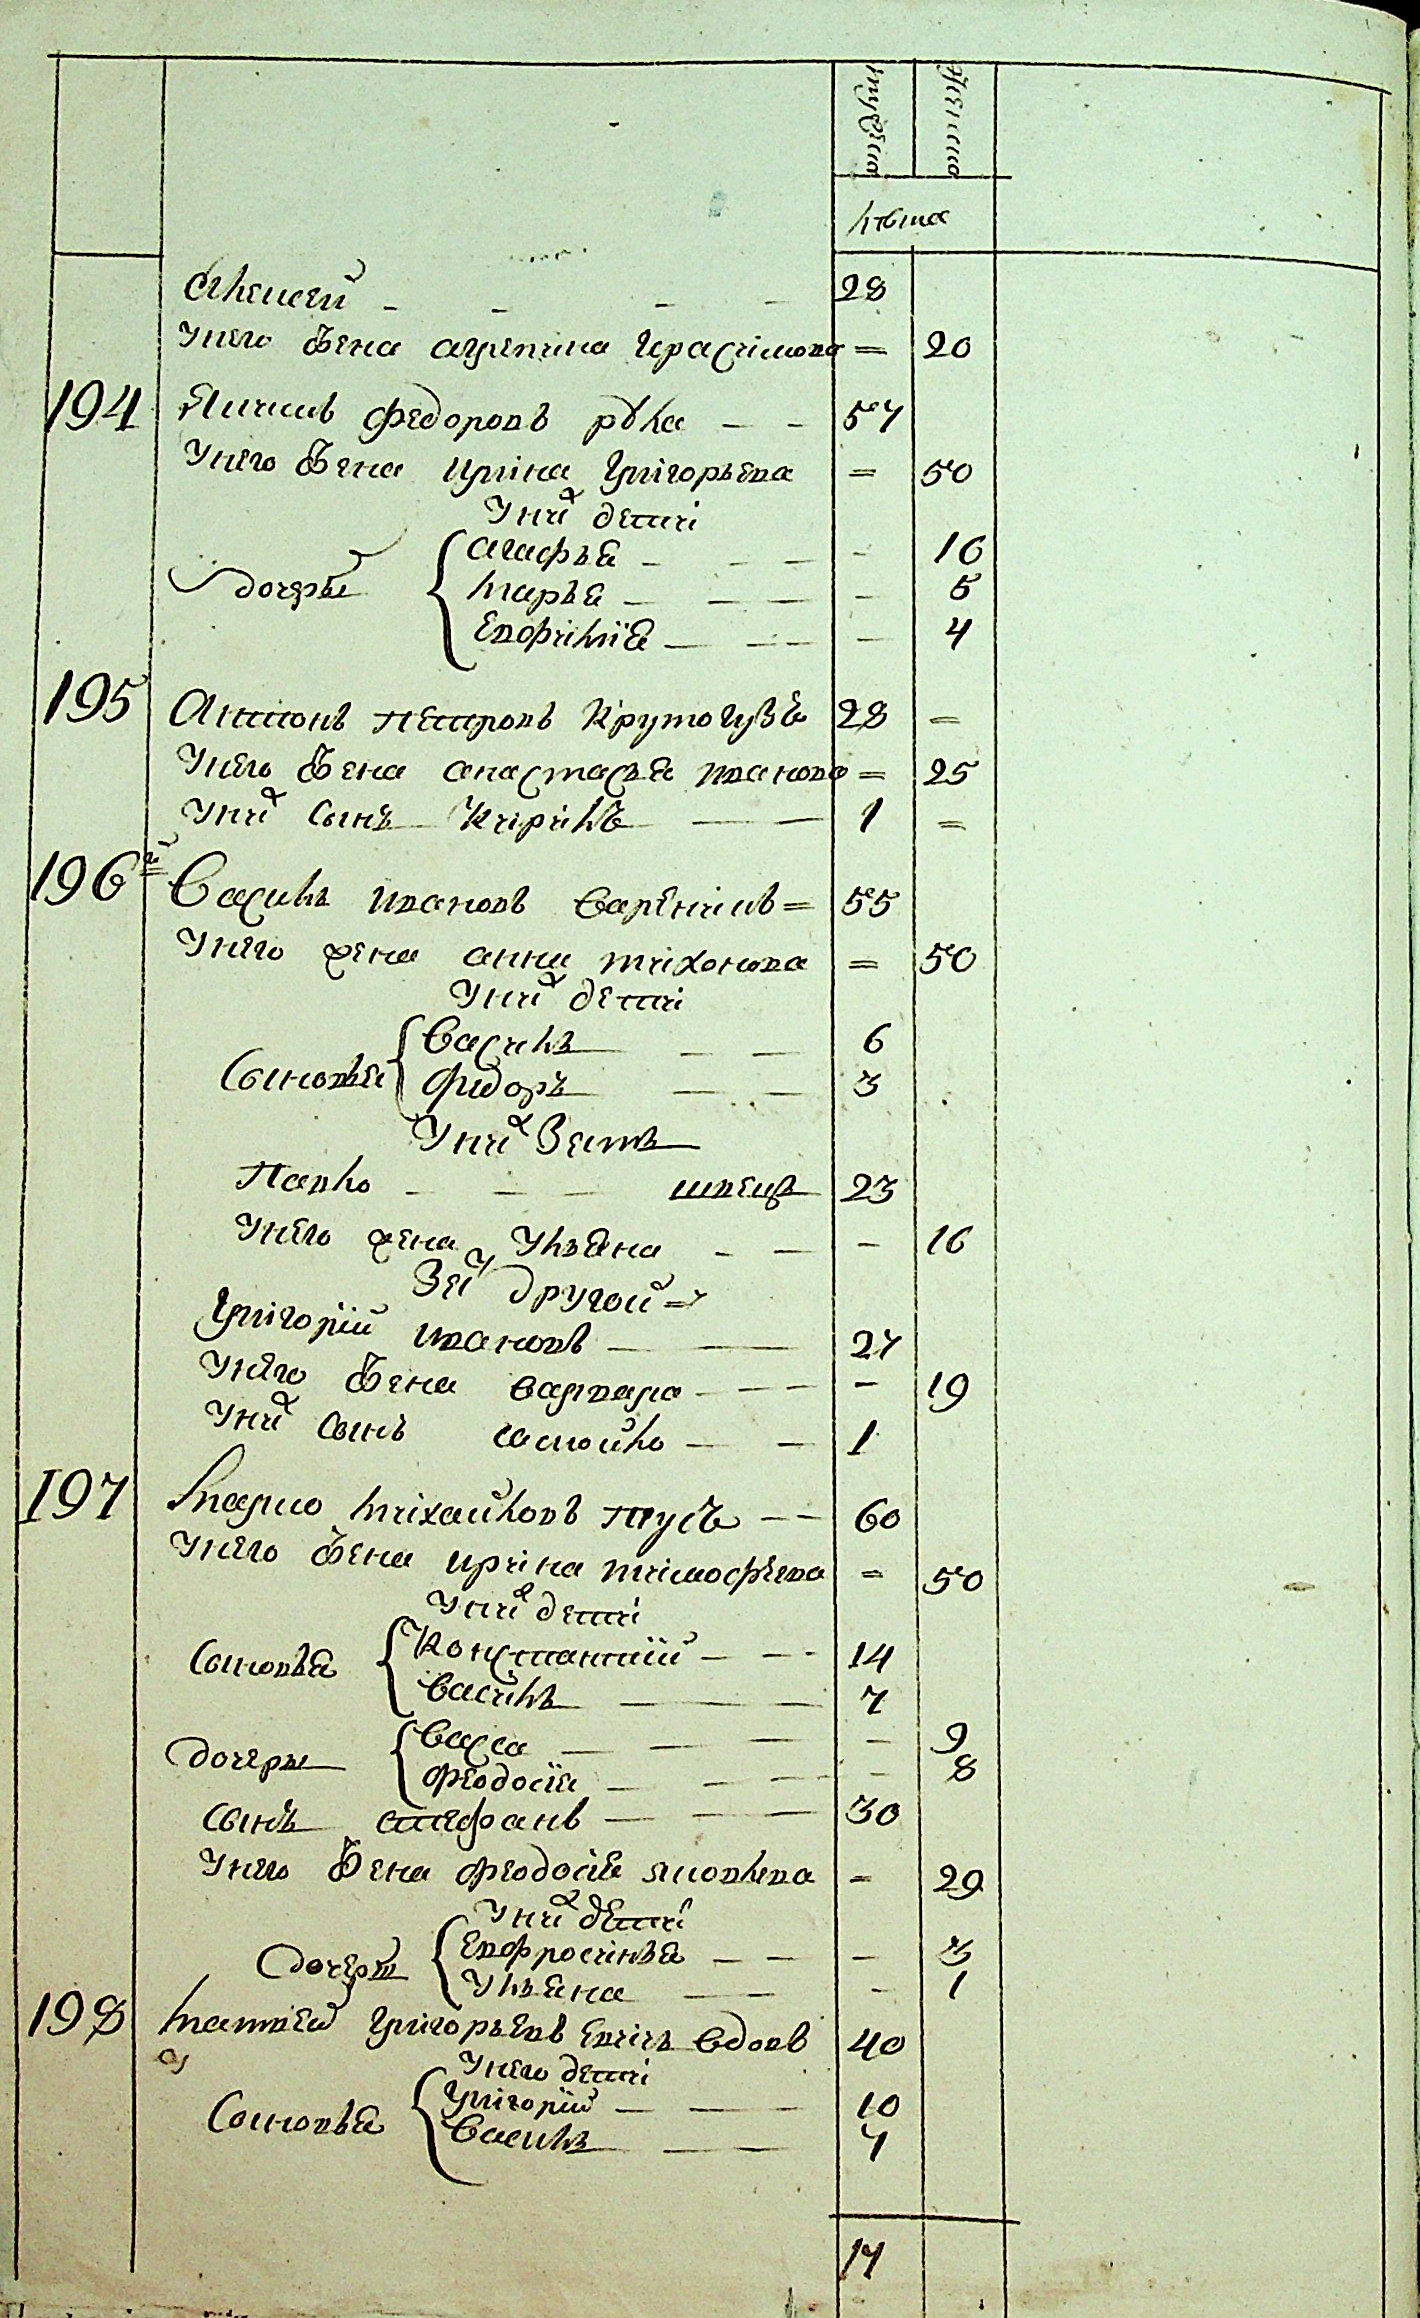 мужеска
женска
лѣта
Алексей 28
У него жена агрепина Герасимова = 20
194 Якимъ Федоровъ рука 57
У него жена ирина Григорьева = 50
У них дети
дочери агафья - 16
марья - 5
Евфимия - 4
195 Антонъ Петровъ Кругогузъ 28 =
У него жена анастасья иванова = 25
У них сынъ Кирилъ 1 =
196й Василь ивановъ Варенникъ = 55
У него жена анна тихонова = 50
У них дети
Сыновья Василь 6
Федоръ 3
У них Зять
Павло швецъ 23
У него жена Ульяна - 16
Зять другой
Григорий ивановъ 27
У него жена варвара - 19
У них сынъ самойло 1
197 Марко михайловъ Трусъ 60
У него жена ирина тимофеева = 50
У них дети
Сыновья Константий 14
Василь 7
дочери Васса - 9
Феодосия - 8
сынъ стефанъ 30
У него жена феодосия яковлева = 29
У них дети
дочери Евфросинья - 3
Ульяна - 1
198 Матвей Григорьевъ вдовъ 40
У него дети
Сыновья Григорий 10
Василь 7
17